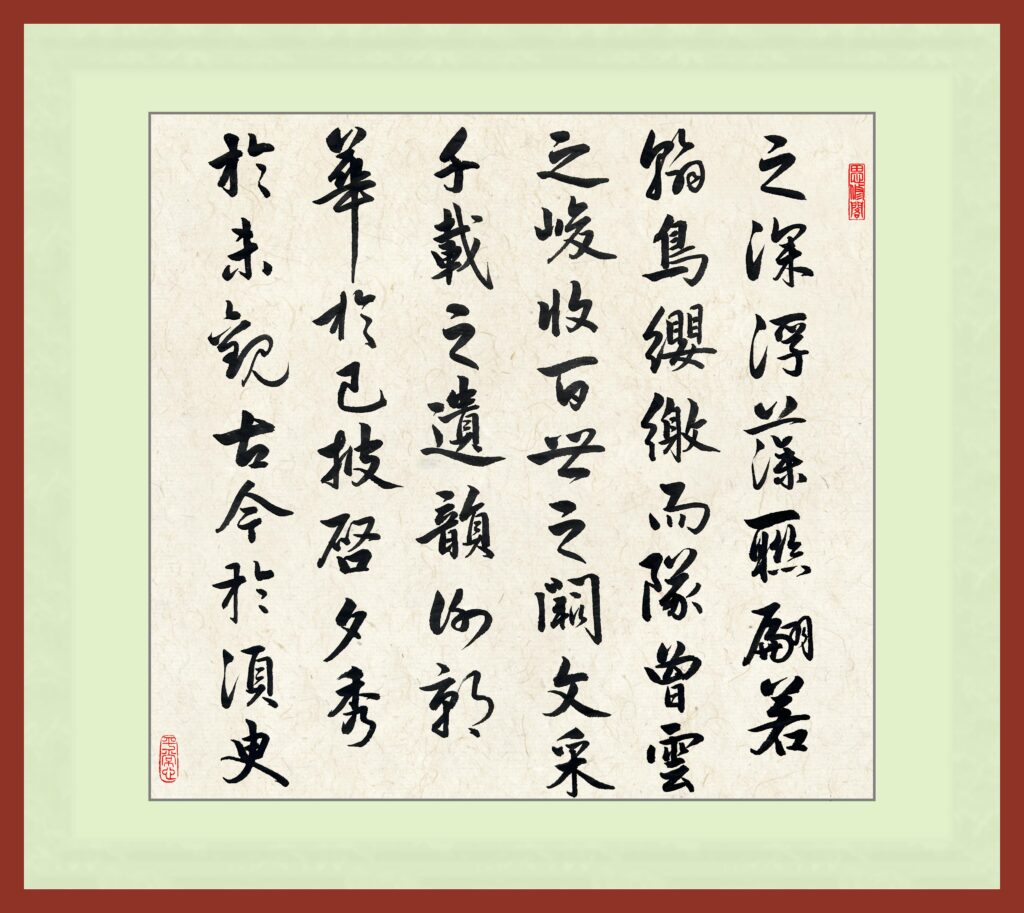 之深浮藻聯翩若
翰鳥纓繳而隊曾雲
之峻收百世之闕文采
千載之遺韻謝朝
華於已披啓夕秀
於未觀古今於須臾
平常心